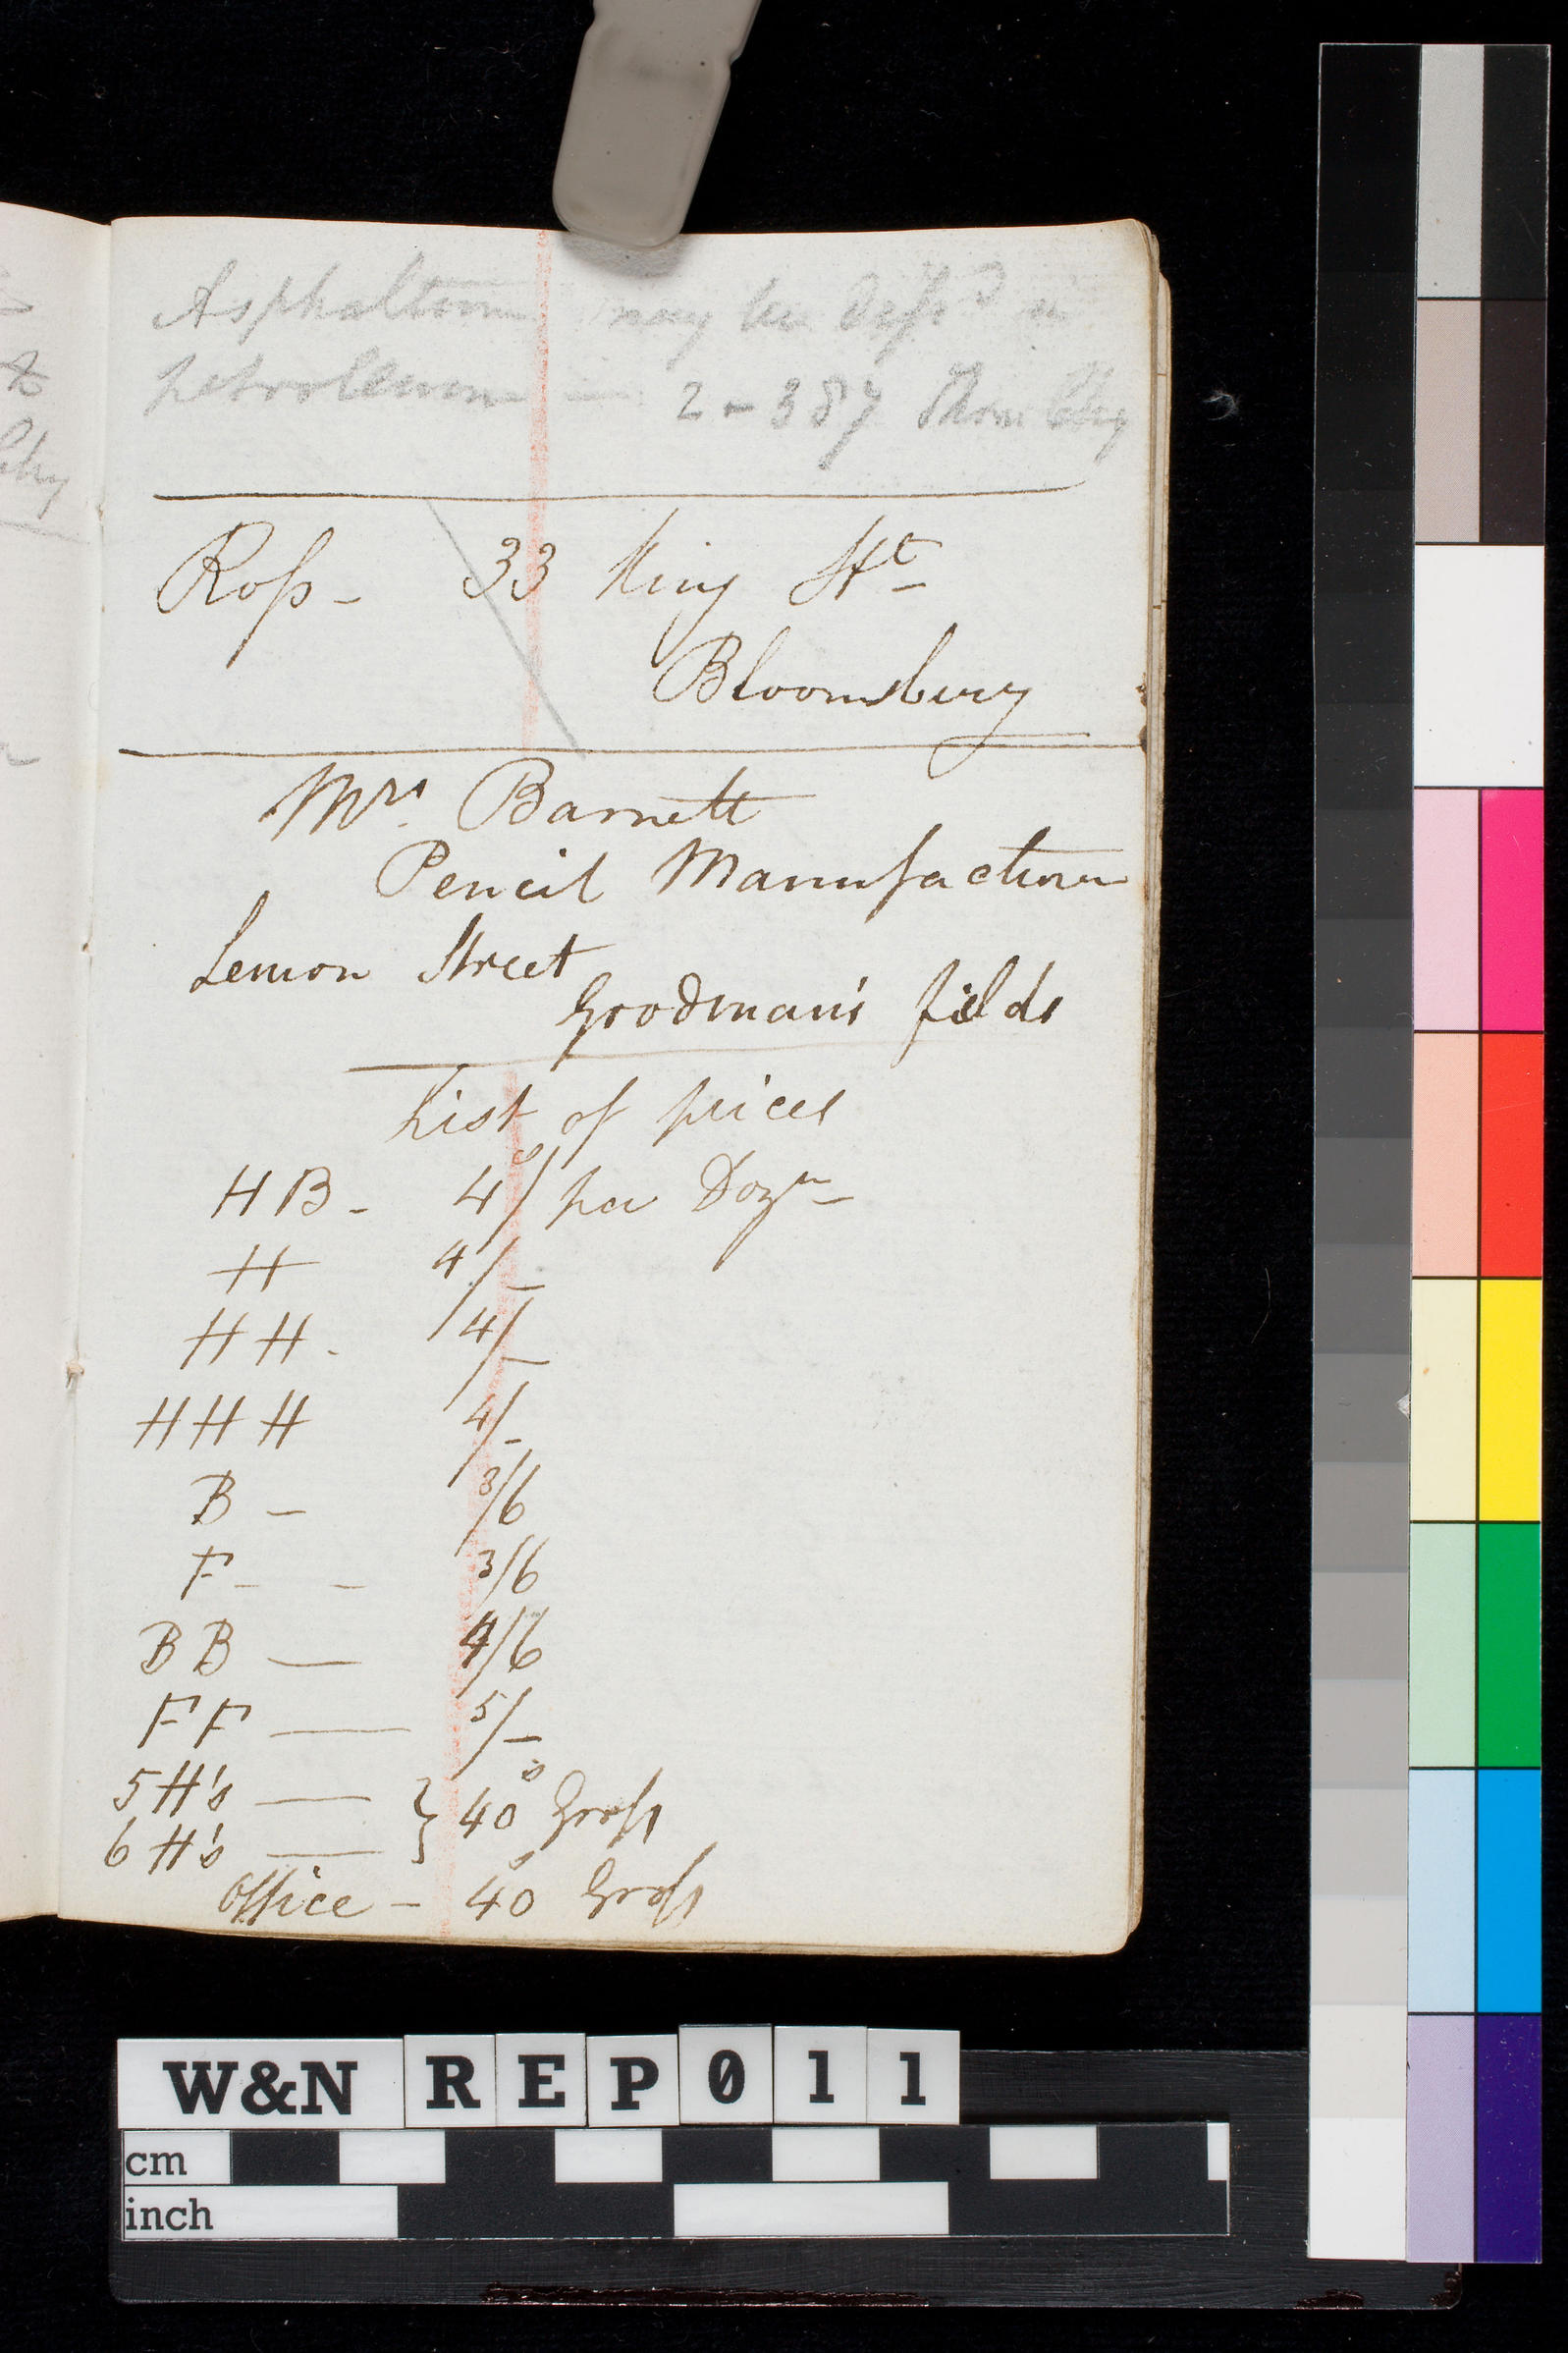 Asphaltum may be Dissd in
petroleum — 2-387 Thom Chy
Ross - 33 King St
Bloomsbury
Mrs. Barnett
Pencil Manufacturer
Lemon Street
Goodman's fields
List of prices
HB - 4s/ per Dozn
H 4/-
HH - 4/-
HHH 4/-
B - 3/6
F - - 3/6
BB — 4/6
FF — 5/-
5 H's — } 40s Gross
6 H's —
Office - 40s Gross
to
Chy
W&N REP011
cm
inch